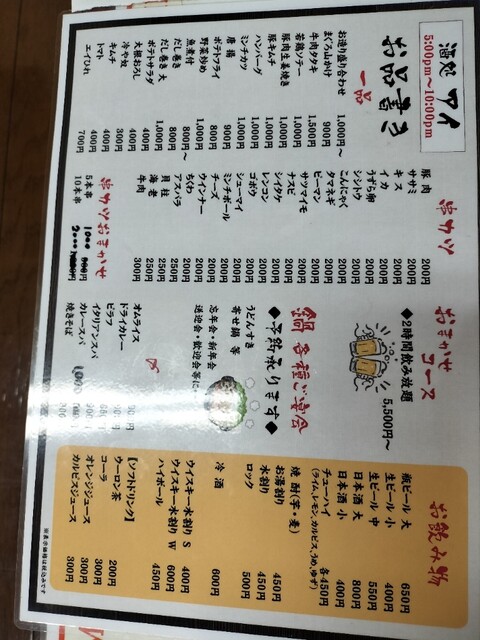 酒処 アイ
5:00pm～10:00pm
お品書き
一品
お造り盛り合わせ 1,000円～
まぐろ山かけ 900円
牛肉タタキ 1,500円
若鶏ソテー 1,000円
豚肉生姜焼き 1,000円
豚キムチ 1,000円
ハンバーグ 1,000円
ミンチカツ 1,000円
唐揚 900円
ポテトフライ 500円
野菜炒め 1,000円
魚煮付 800円～
だし巻き 800円
だし巻き 大 1,000円
ポテトサラダ 400円
大根おろし 300円
冷や奴 400円
キムチ 400円
トマト 400円
エイひれ 700円
串カツ
豚肉 200円
ササミ 200円
キス 200円
イカ 200円
うずら卵 200円
シシトウ 200円
こんにゃく 200円
タマネギ 200円
ピーマン 200円
サツマイモ 200円
ナスビ 200円
シイタケ 200円
レンコン 200円
ゴボウ 200円
シューマイ 200円
ミンチボール 200円
チーズ 200円
ウインナー 200円
ちくわ 200円
アスパラ 200円
貝柱 250円
海老 250円
牛肉 300円
串カツおまかせ
5本串 1000
10本串 2000
おまかせコース
◆2時間飲み放題
5,500円～
鍋 各種ご宴会
◆予約承ります◆
うどんすき
寄せ鍋 等
忘年会・新年会
送迎会・歓迎会等に
〆
オムライス
ドライカレー
ピラフ
イタリアンスパ
カレースパ
焼きそば
お飲み物
瓶ビール 大 650円
生ビール 小 400円
生ビール 中 550円
日本酒 大 800円
日本酒 小 400円
チューハイ 各450円
(ライム、レモン、カルピス、うめ、ゆず)
焼酎(芋・麦)
お湯割り 450円
水割り 450円
ロック 500円
冷酒 600円
ウイスキー水割り S 400円
ウイスキー水割り W 600円
ハイボール 450円
【ソフトドリンク】
ウーロン茶 200円
コーラ 300円
オレンジジュース 300円
カルピスジュース 300円
※表示価格は税込みです